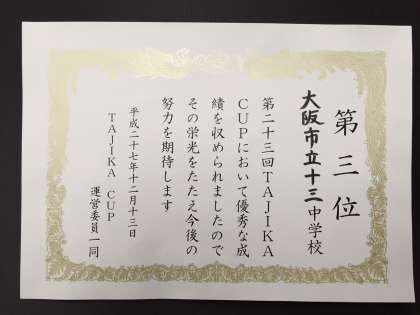 第三位
大阪市立十三中学校
第二十三回TAJIKA
CUPにおいて優秀な成
績を収められましたので
その栄光をたたえ今後の
努力を期待します
平成二十七年十二月十三日
TAJIKA CUP
運営委員一同